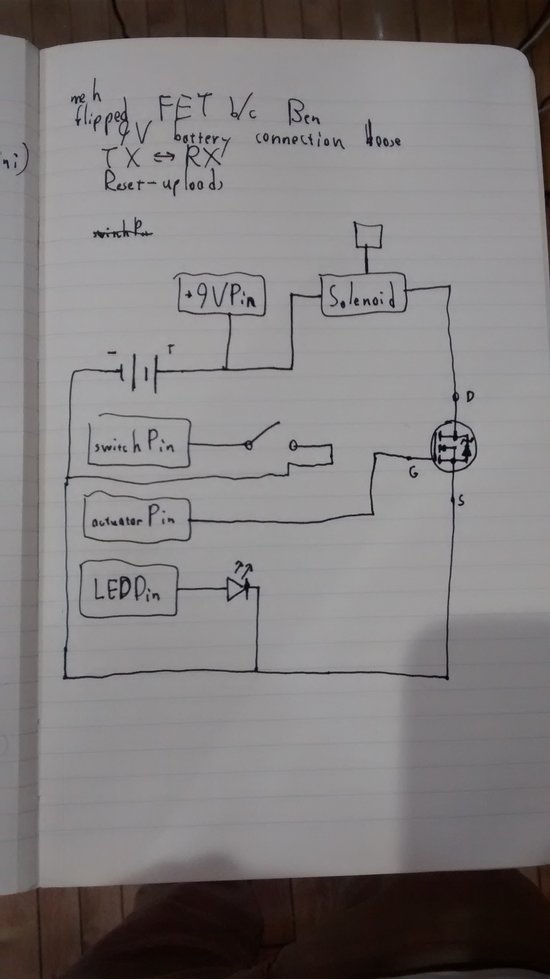 meh
flipped FET b/c Ben
9V battery connection loose
TX ↔ RX
Reset-uploads
ni)
switchP
+9VPin
Solenoid
- +
D
switch Pin
G
S
actuator Pin
LEDPin